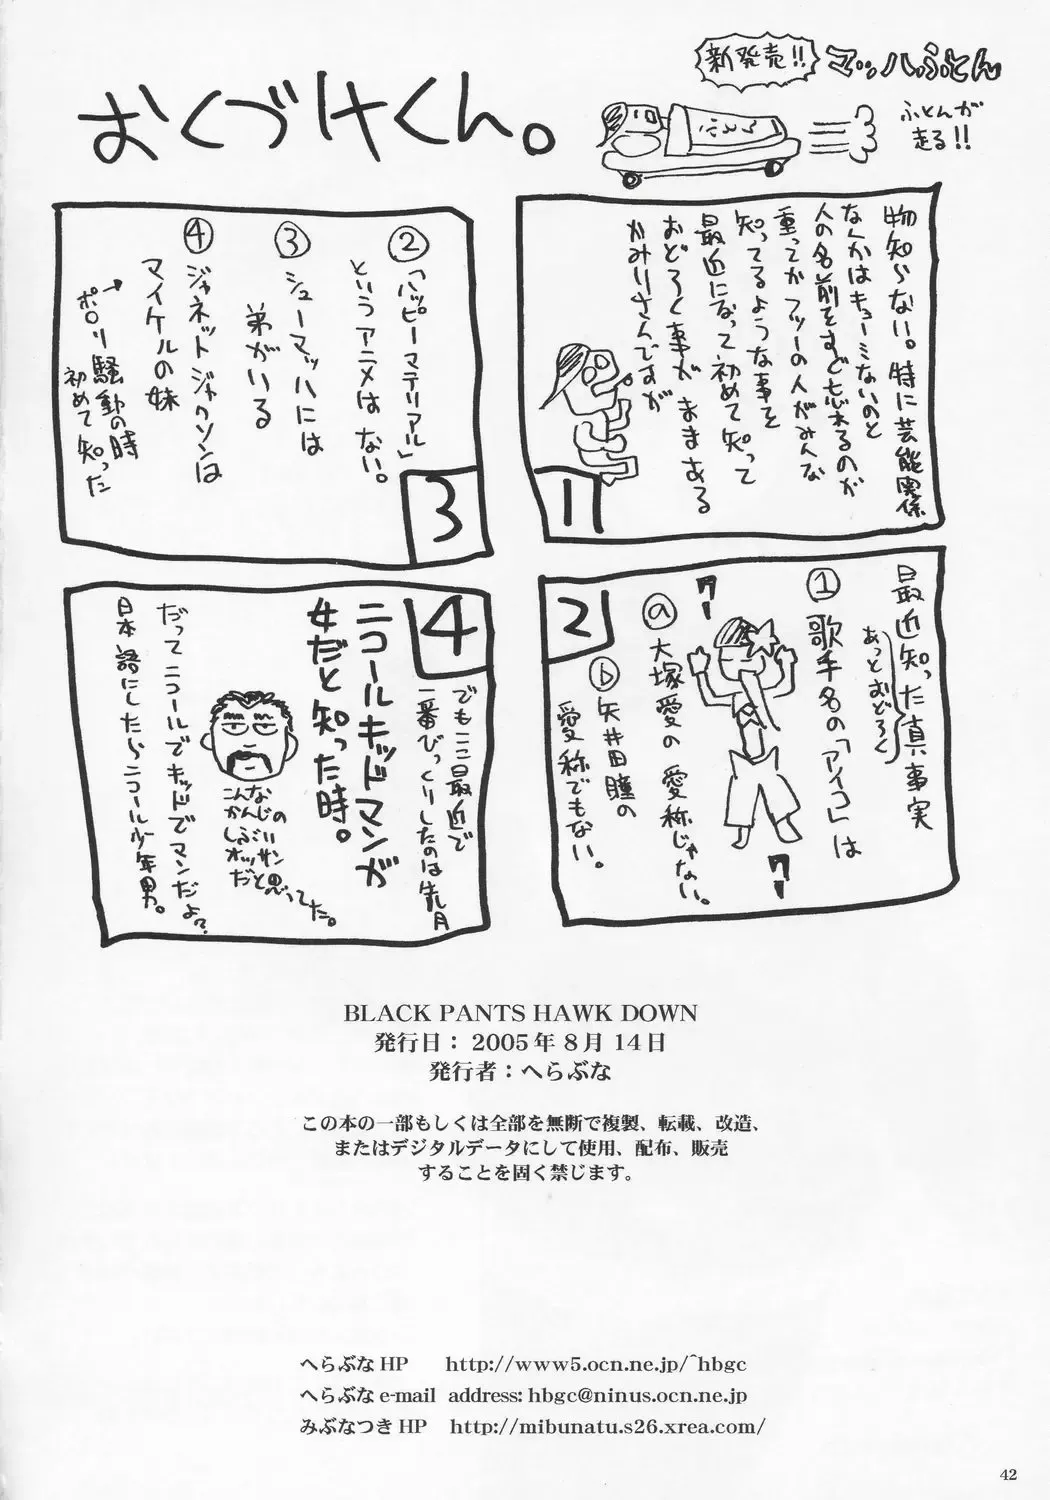 おくづけくん。
新発売!!
マッハふとん
ふとんが
走る!!
ふとん
物知らない。特に芸能関係
なんかはキョーミないのと
人の名前をすぐ忘れるのが
重ってかフツーの人がみんな
知ってるような事を
最近になって初めて知って
おどろく事がままある
かみりさんですが
1
最近知った真事実
あっとおどろく
①歌手名の「アイコ」は
クー
クー
ⓐ大塚愛の愛称じゃない。
ⓑ矢井田瞳の
愛称でもない。
2
②「ハッピーマテリアル」
というアニメはない。
③シューマッハには
弟がいる
④ジャネットジャクソンは
マイケルの妹
→ポロリ騒動の時
初めて知った
3
4
でもここ最近で
一番びっくりしたのは先月
ニコールキッドマンが
女だと知った時。
こんな
かんじの
しぶい
オッサン
だと思ってた。
だってニコールでキッドでマンだよ?
日本語にしたらニコール少年男。
BLACK PANTS HAWK DOWN
発行日：2005年8月14日
発行者：へらぶな
この本の一部もしくは全部を無断で複製、転載、改造、
またはデジタルデータにして使用、配布、販売
することを固く禁じます。
へらぶなHP http://www5.ocn.ne.jp/~hbgc
へらぶなe-mail address: hbgc@ninus.ocn.ne.jp
みぶなつきHP http://mibunatu.s26.xrea.com/
42